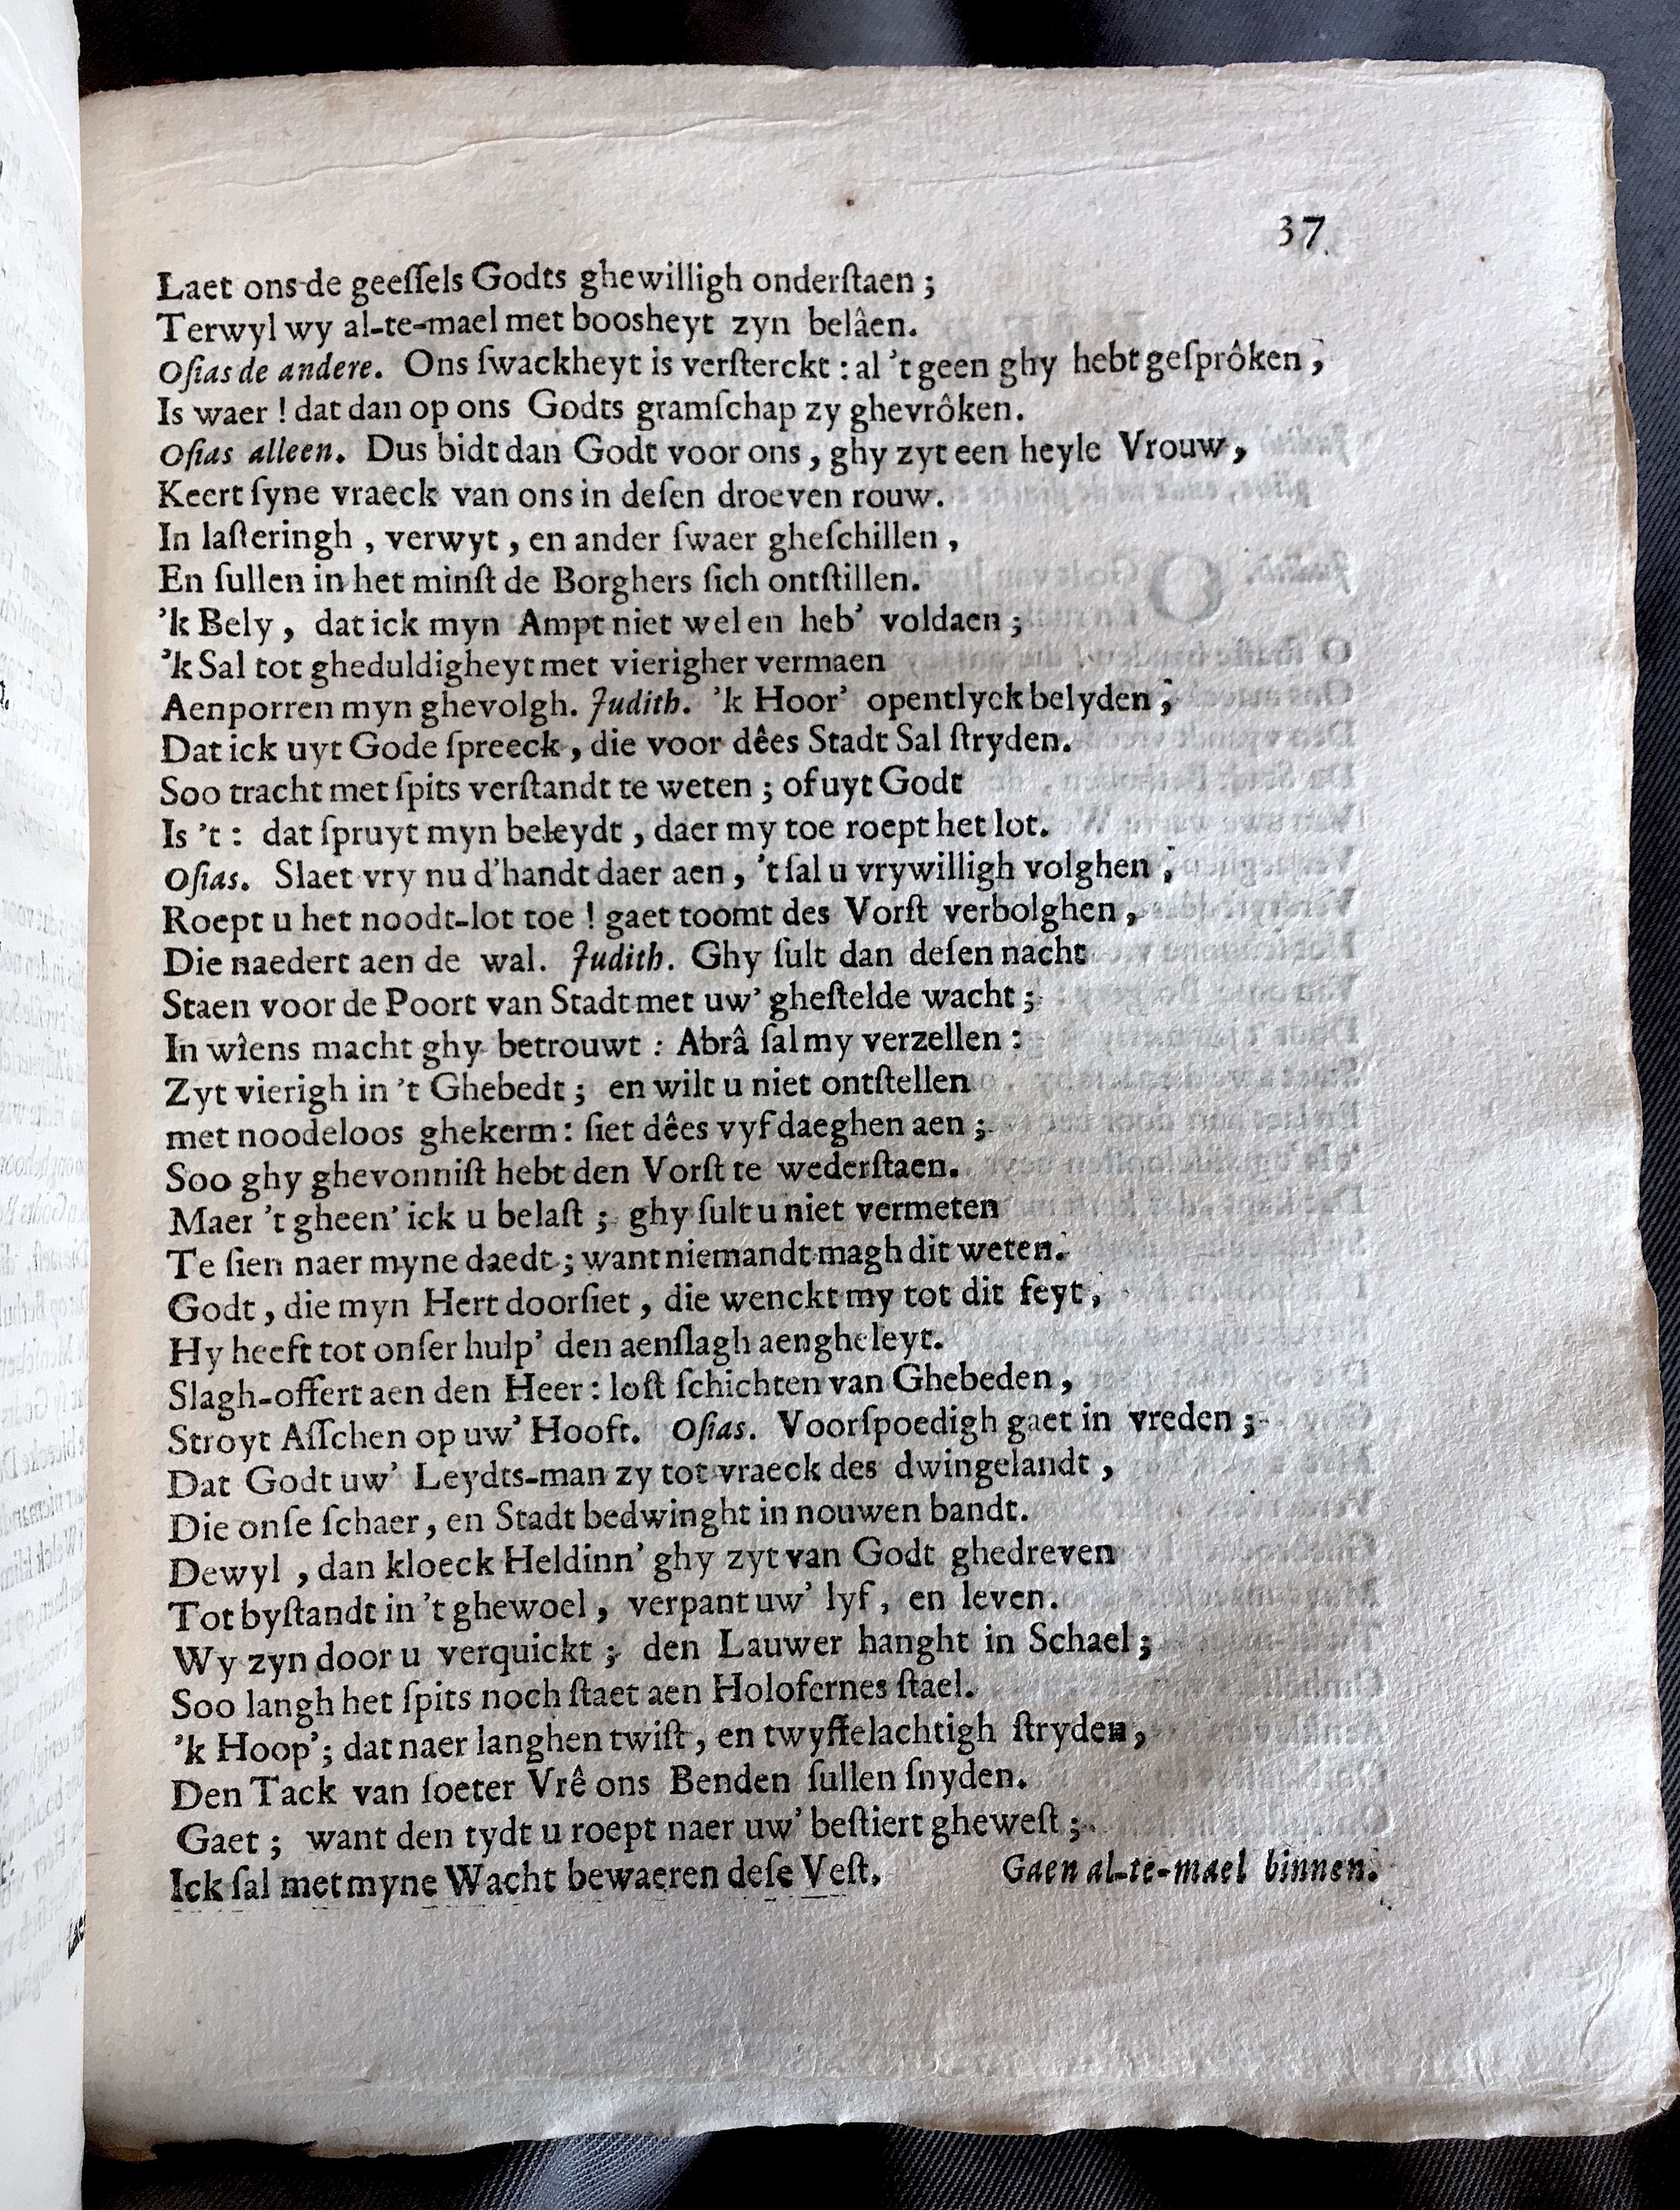 37.
Laet ons de geeſſels Godts ghewilligh onderſtaen ;
Terwyl wy al-te-mael met boosheyt zyn belâen.
Oſias de andere. Ons ſwackheyt is verſterckt : al 't geen ghy hebt geſprôken ;
Is waer ! dat dan op ons Godts gramſchap zy ghevrôken.
Oſias alleen. Dus bidt dan Godt voor ons , ghy zyt een heyle Vrouw,
Keert ſyne vraeck van ons in deſen droeven rouw.
In laſteringh , verwyt , en ander ſwaer gheſchillen ,
En ſullen in het minſt de Borghers ſich ontſtillen.
'k Bely , dat ick myn Ampt niet wel en heb' voldaen ;
'k Sal tot gheduldigheyt met vierigher vermaen
Aenporren myn ghevolgh. Judith. 'k Hoor' opentlyck belyden ;
Dat ick uyt Gode ſpreeck , die voor dêes Stadt Sal ſtryden.
Soo tracht met ſpits verſtandt te weten ; of uyt Godt
Is 't : dat ſpruyt myn beleydt , daer my toe roept het lot.
Oſias. Slaet vry nu d'handt daer aen , 't ſal u vrywilligh volghen ;
Roept u het noodt-lot toe ! gaet toomt des Vorſt verbolghen ,
Die naedert aen de wal. Judith. Ghy ſult dan deſen nacht
Staen voor de Poort van Stadt met uw' gheſtelde wacht ;
In wîens macht ghy betrouwt : Abrâ ſal my verzellen :
Zyt vierigh in 't Ghebedt ; en wilt u niet ontſtellen
met noodeloos ghekerm : ſiet dêes vyf daeghen aen ;
Soo ghy ghevonniſt hebt den Vorſt te wederſtaen.
Maer 't gheen' ick u belaſt ; ghy ſult u niet vermeten
Te ſien naer myne daedt ; want niemandt magh dit weten.
Godt , die myn Hert doorſiet , die wenckt my tot dit feyt ,
Hy heeft tot onſer hulp' den aenſlagh aengheleyt.
Slagh-offert aen den Heer : loſt ſchichten van Ghebeden ,
Stroyt Aſſchen op uw' Hooft. Oſias. Voorſpoedigh gaet in vreden ;
Dat Godt uw' Leydts-man zy tot vraeck des dwingelandt ,
Die onſe ſchaer , en Stadt bedwinght in nouwen bandt.
Dewyl , dan kloeck Heldinn' ghy zyt van Godt ghedreven
Tot byſtandt in 't ghewoel , verpant uw' lyf , en leven.
Wy zyn door u verquickt ; den Lauwer hanght in Schael ;
Soo langh het ſpits noch ſtaet aen Holofernes ſtael.
'k Hoop' ; dat naer langhen twiſt , en twyffelachtigh ſtryden ,
Den Tack van ſoeter Vrê ons Benden ſullen ſnyden.
Gaet ; want den tydt u roept naer uw' beſtiert gheweſt ;
Ick ſal met myne Wacht bewaeren deſe Veſt. Gaen al-te-mael binnen.